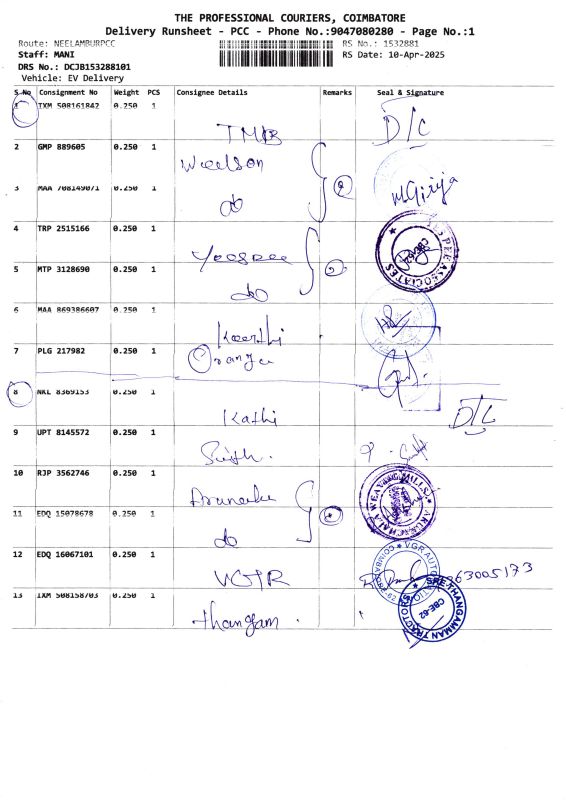 THE PROFESSIONAL COURIERS, COIMBATORE
Delivery Runsheet - PCC - Phone No.:9047080280 - Page No.:1
Route: NEELAMBURPCC RS No.: 1532881
Staff: MANI RS Date: 10-Apr-2025
DRS No.: DCJB153288101
Vehicle: EV Delivery
S No Consignment No Weight PCS Consignee Details Remarks Seal & Signature
1 IXM 508161842 0.250 1 TMB D/C
2 GMP 889605 0.250 1 Weelson 2
3 MAA 708149071 0.250 1 do M.Girija
4 TRP 2515166 0.250 1 Yeespee 2
5 MTP 3128690 0.250 1 do
6 MAA 869386607 0.250 1 Keerthi
7 PLG 217982 0.250 1 Orange
8 NKL 8369153 0.250 1 Kathi D/C
9 UPT 8145572 0.250 1
10 RJP 3562746 0.250 1
11 EDQ 15078678 0.250 1 do
12 EDQ 16067101 0.250 1 VGR
13 IXM 508158703 0.250 1 thangam
YES PEE ASSOCIATES
SREE THANGAMMAN TRACTORS CBE-62